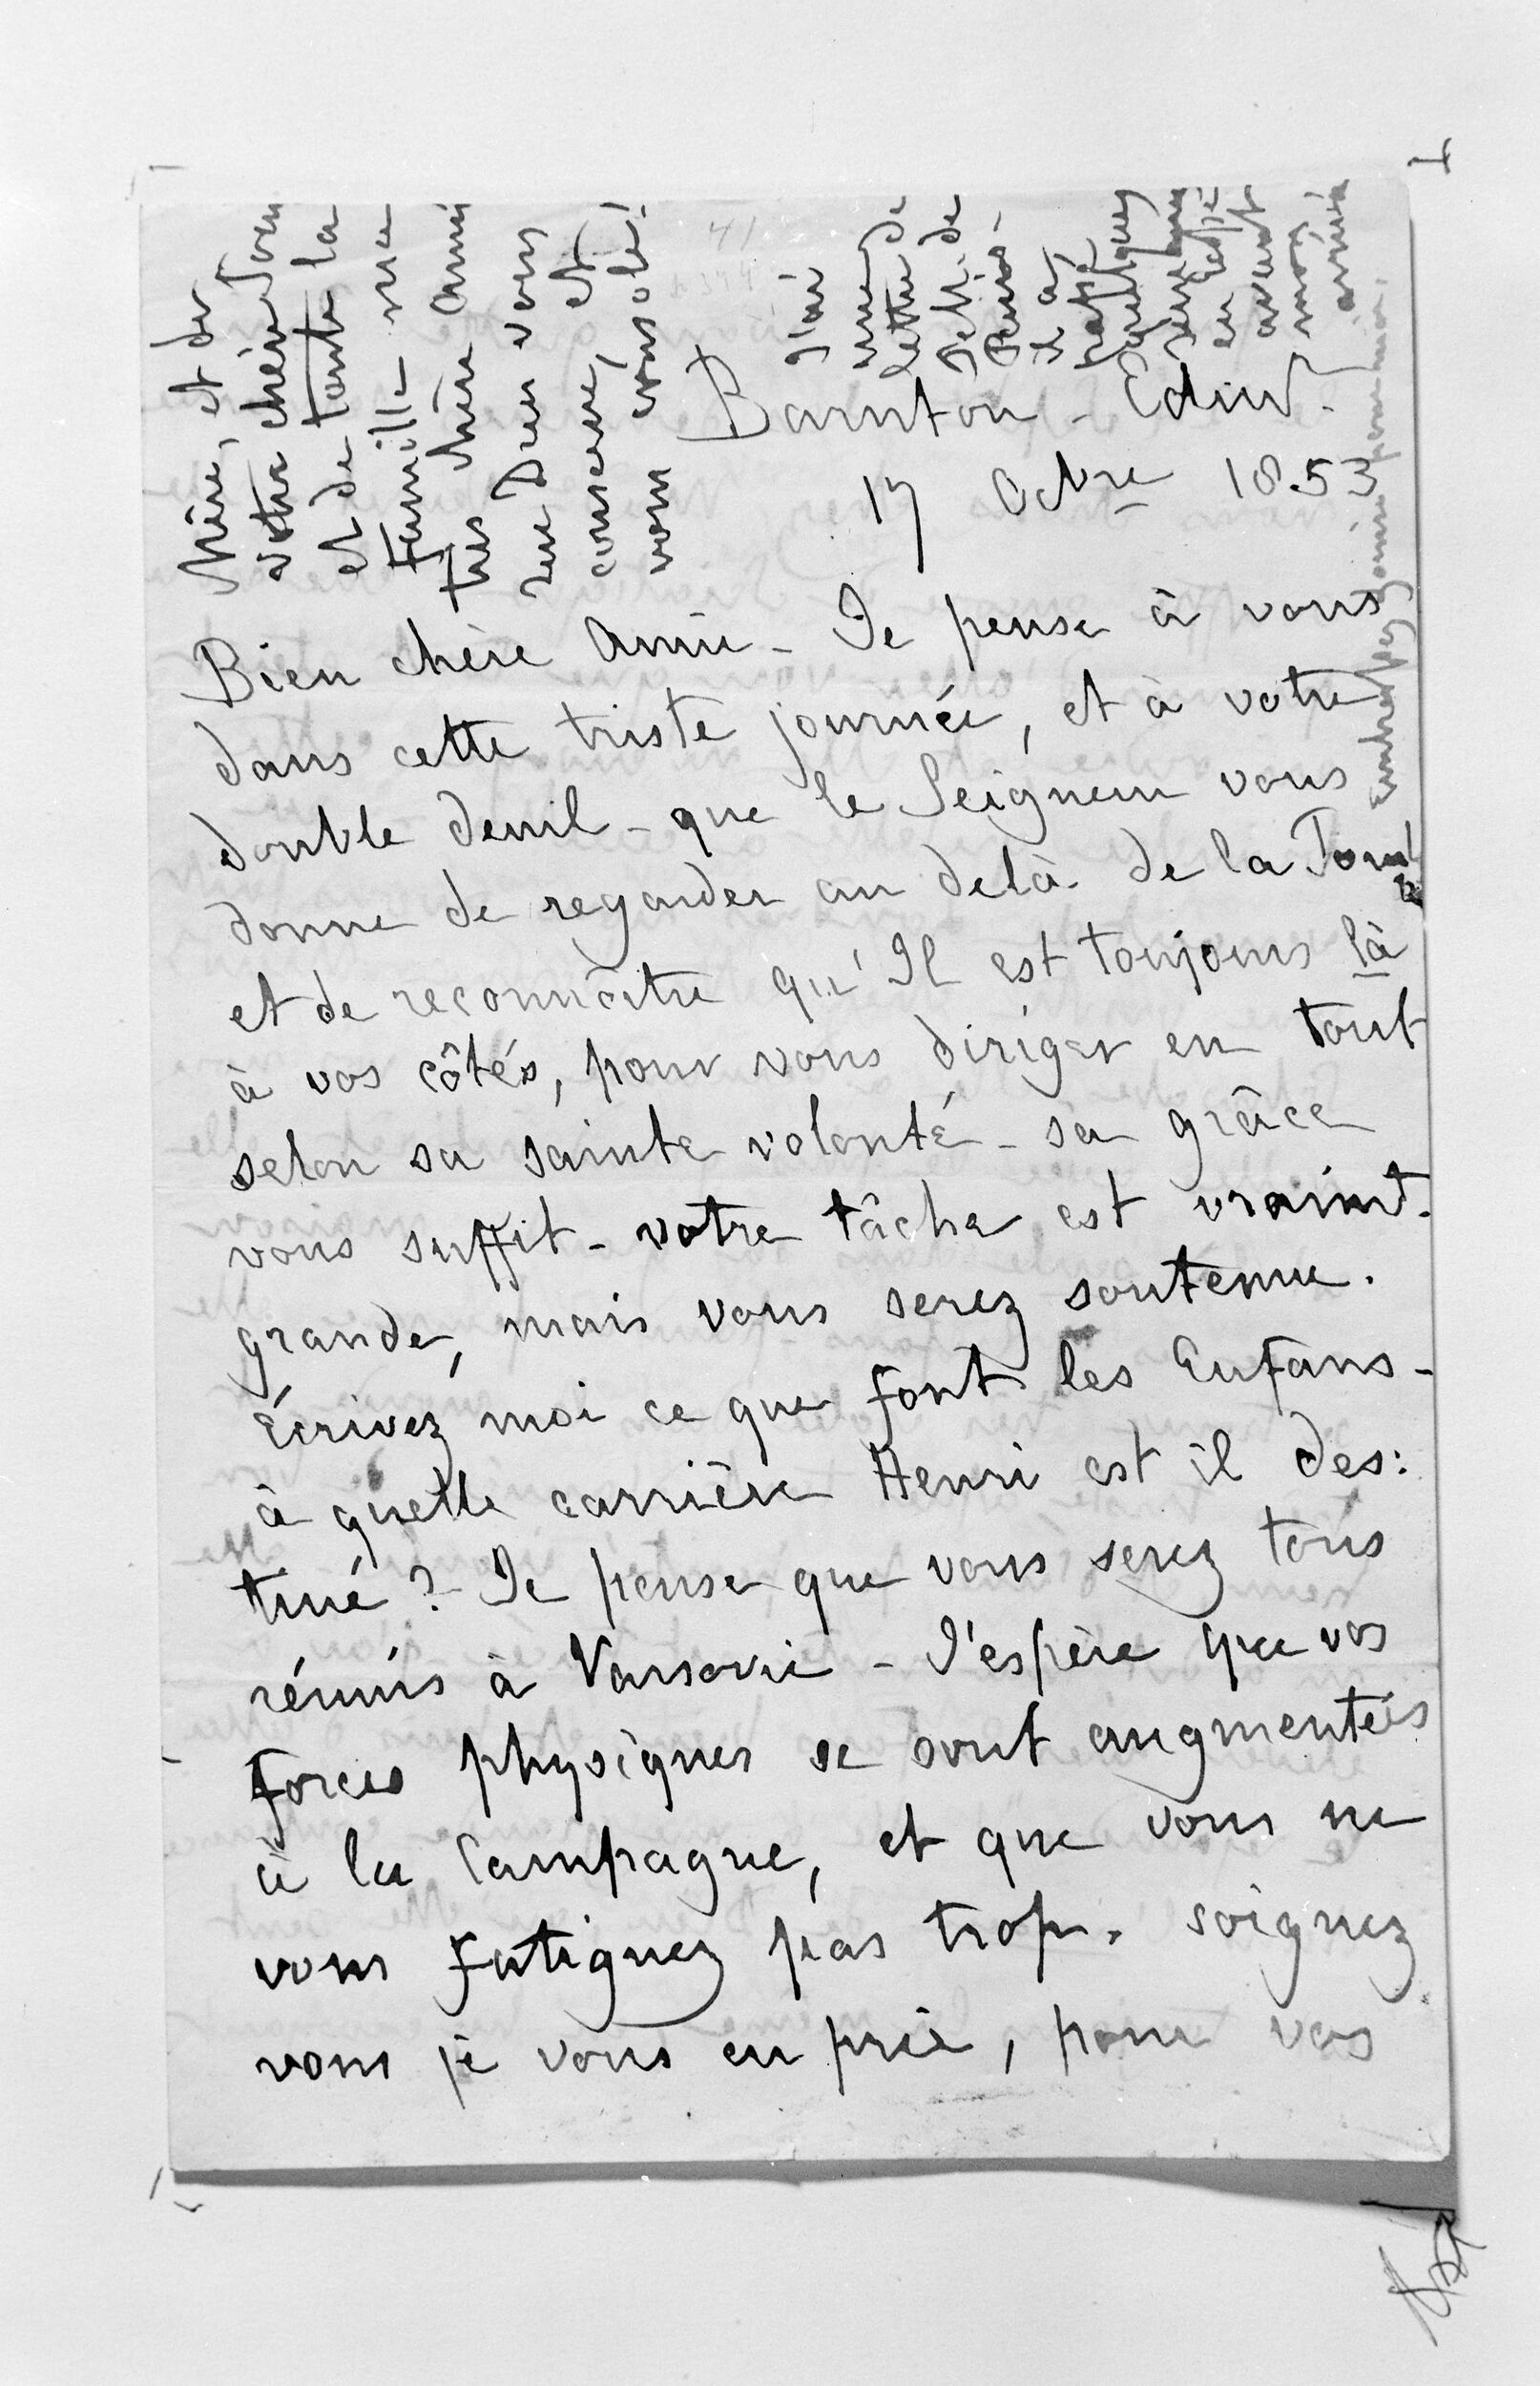 Barnton - Edinr.
17 Octbre 1853
Bien chère Amie - Je pense à vous
dans cette triste journée, et à votre
double deuil - que le Seigneur vous
donne de regarder au delà de la Tombe
et de reconnaître qu'Il est toujours là
à vos côtés, pour vous diriger en tout
selon sa sainte volonté - sa grâce
vous suffit - votre tâche est vraimt.
grande, mais vous serez soutenue.
écrivez moi ce que font les Enfans -
à quelle carrière Henri est il des:
tiné ? - Je pense que vous serez tous
réunis à Varsovie - J'espère que vos
forces physiques se sont augmentées
à la Campagne, et que vous ne
vous fatiguez pas trop. soignez
vous je vous en prie, pour vos
Mère, et de
votre chère
et de toute la
famille
Mère Amie
que Dieu vous
conserve, et
vous console!
J'ai
une
lettre de
de
quelques
avant
mon
arrivée